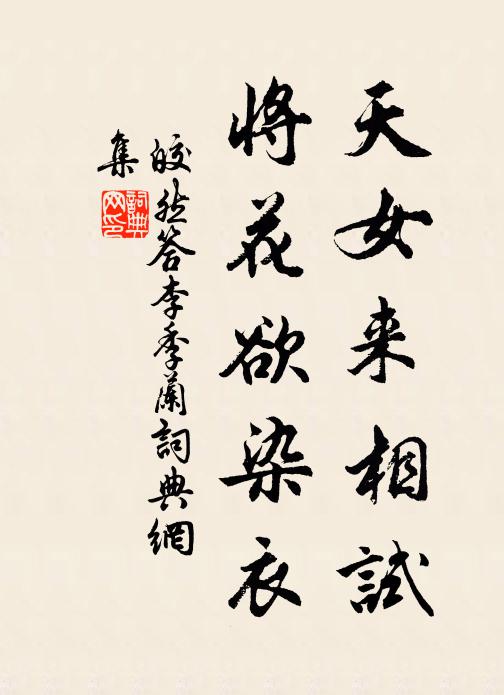 天女来相試
將花欲染衣
皎然答李季蘭詞典網
集
詞典
网印